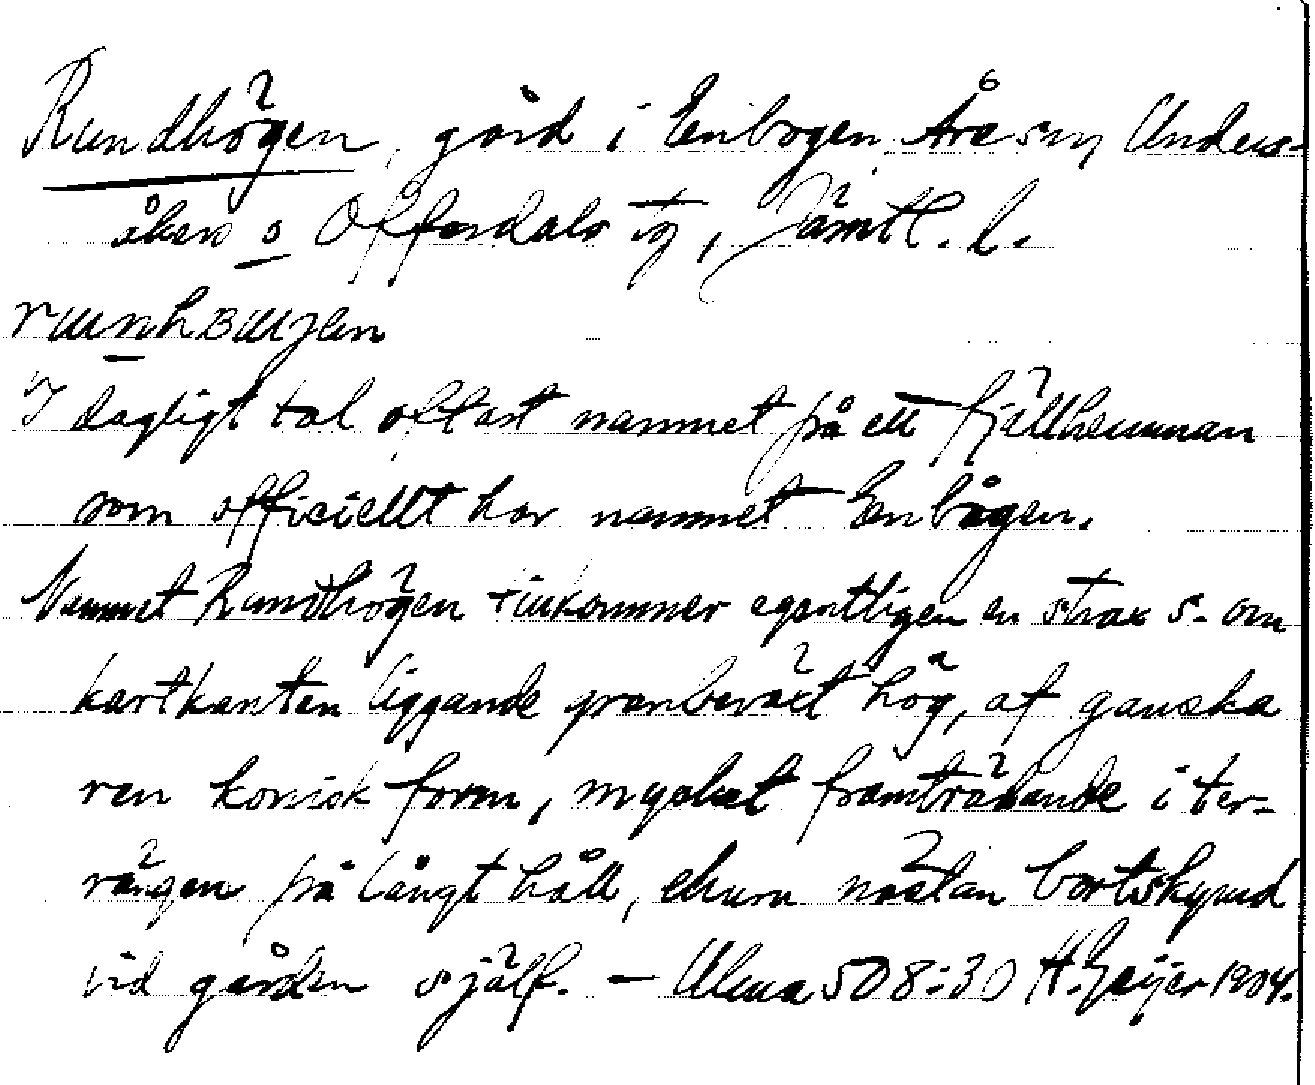 Rundhögen, gård i Enbogen Åre sn, Anders-
åkers o Offerdals tg, Jämtl. l.
I dagligt tal oftast namnet på ett fjällhemman
som officiellt har namnet Enbågen.
Namnet Rundhögen tillkommer egentligen en strax s. om
kartkanten liggande granbeväxt hög, af ganska
ren konisk form, mycket framträdande i ter-
rängen på långt håll, ehuru nästan bortskymd
vid gården själf. — Ulma 508:30 H. Geijer 1904.